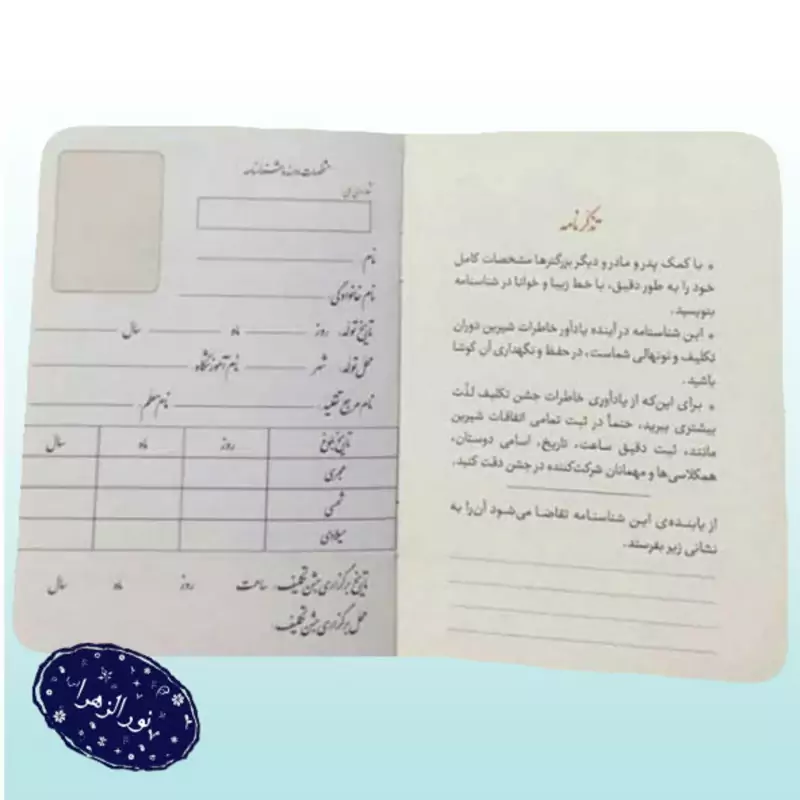 تذکر نامه
• با کمک پدر و مادر و دیگر بزرگترها مشخصات کامل
خود را به طور دقیق، با خط زیبا و خوانا در شناسنامه
بنویسید.
• این شناسنامه در آینده یادآور خاطرات شیرین دوران
تکلیف و نونهالی شماست، در حفظ و نگهداری آن کوشا
باشید.
• برای این‌که از یادآوری خاطرات جشن تکلیف لذّت
بیشتری ببرید، حتماً در ثبت تمامی اتفاقات شیرین
مانند، ثبت دقیق ساعت، تاریخ، اسامی دوستان،
همکلاسی‌ها و مهمانان شرکت‌کننده در جشن دقت کنید.
از یابنده‌ی این شناسنامه تقاضا می‌شود آن‌را به
نشانی زیر بفرستد.
مشخصات دارنده شناسنامه
نام
نام خانوادگی
تاریخ تولد: روز ماه سال
محل تولد: شهر نام آموزشگاه
نام مرجع تقلید: نام معلم
تاریخ بلوغ روز ماه سال
هجری
شمسی
میلادی
تاریخ برگزاری جشن تکلیف: ساعت روز ماه سال
محل برگزاری جشن تکلیف:
نورالزهرا